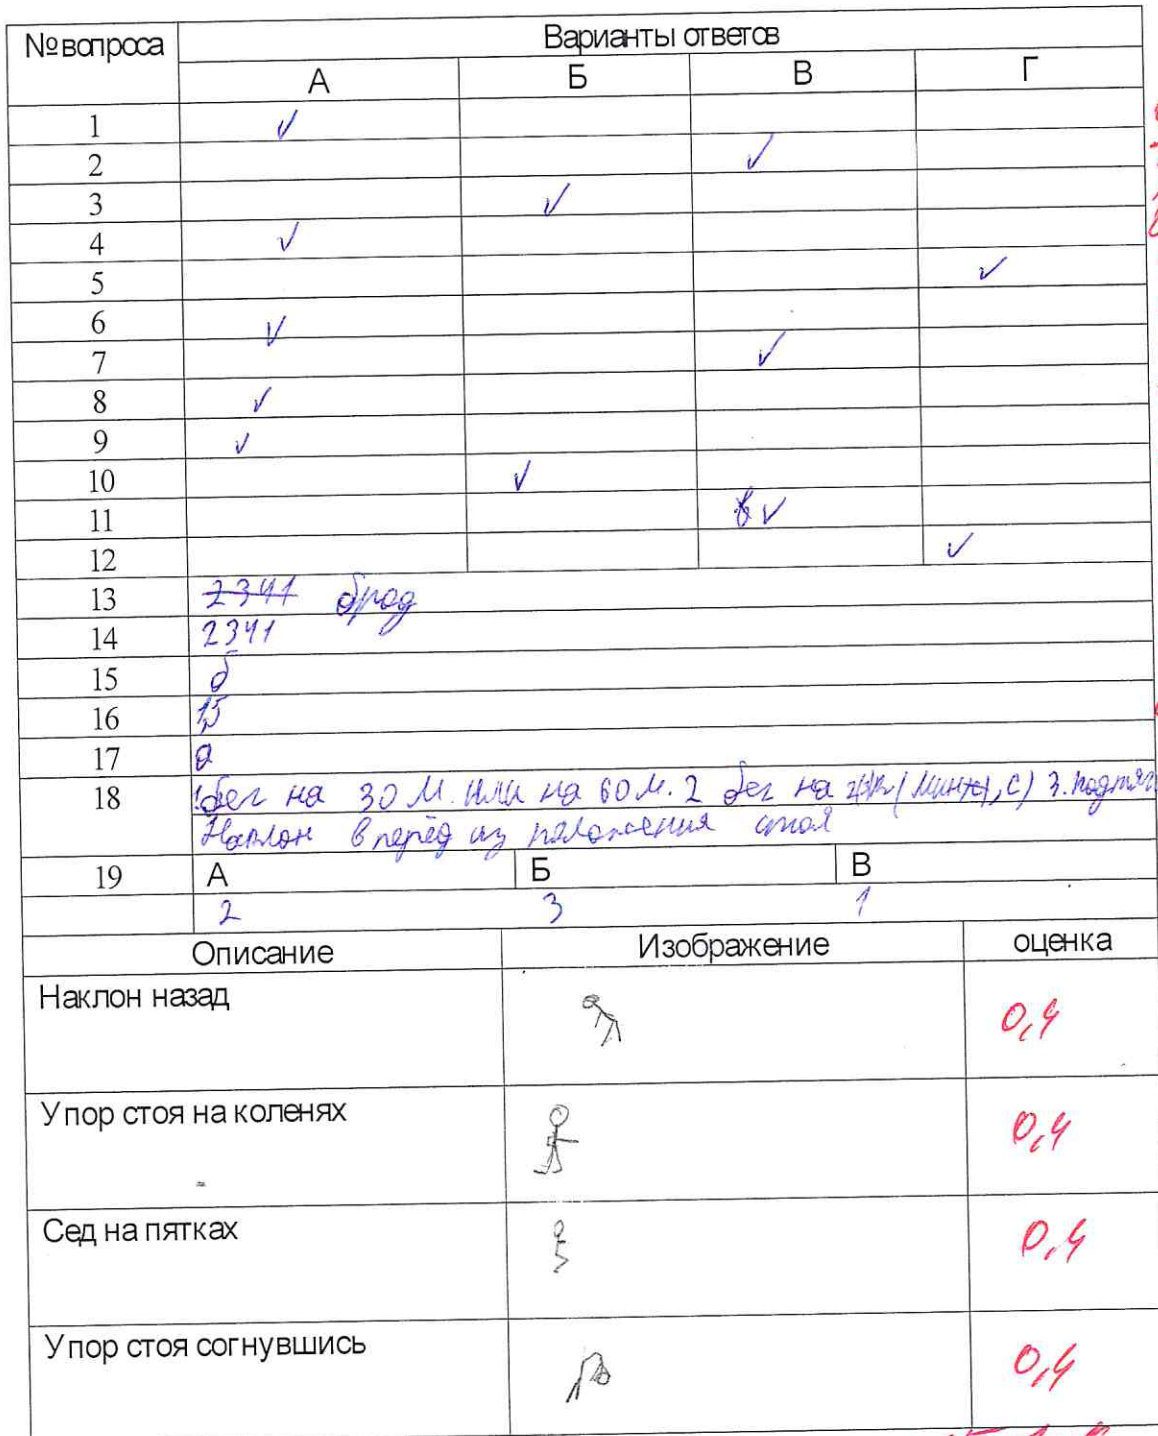 № вопроса Варианты ответов
А Б В Г
1 ✓
2 ✓
3 ✓
4 ✓
5 ✓
6 ✓
7 ✓
8 ✓
9 ✓
10 ✓
11 ✓
12 ✓
13 2341 брод
14 2341
15 б
16 1,5
17
18 1. бег на 30 м. или на 60 м. 2 бег на (минты, с) 3. подтяг
Наклон вперёд из положения стоя
19 А Б В
2 3 1
Описание Изображение оценка
Наклон назад 0,4
Упор стоя на коленях 0,4
Сед на пятках 0,4
Упор стоя согнувшись 0,4